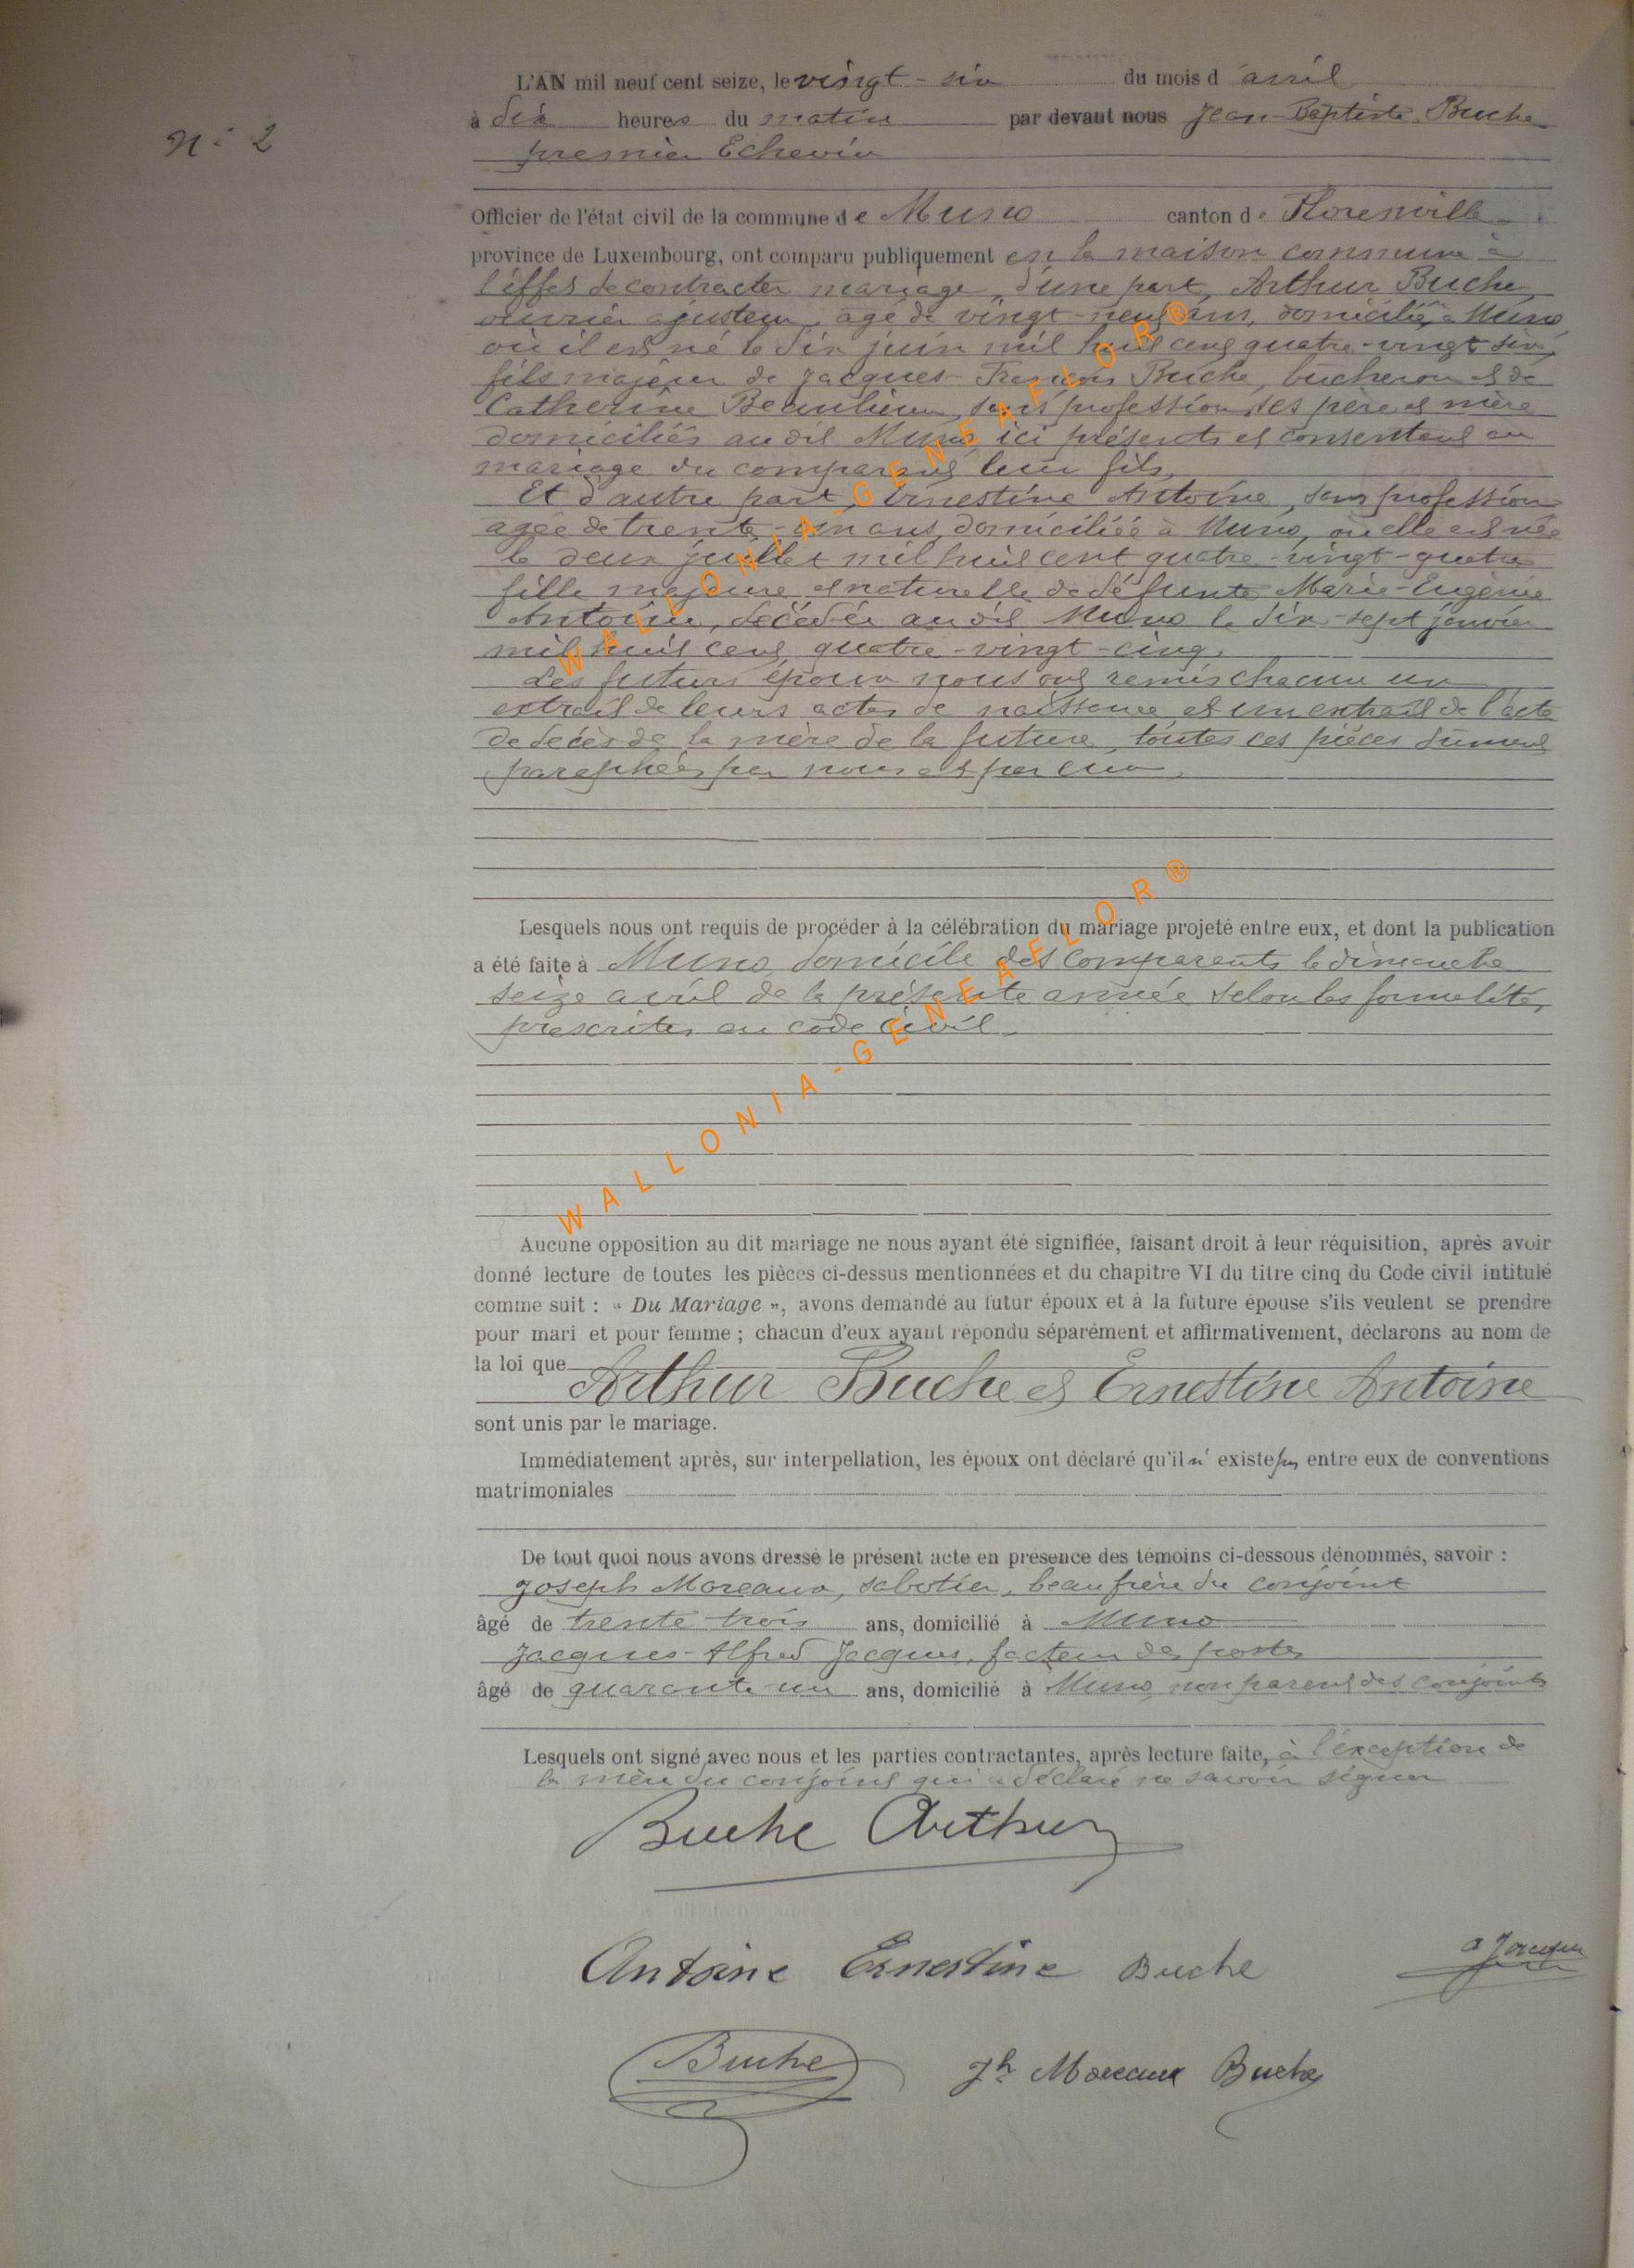 N° 2
L'AN mil neuf cent seize, le vingt-six du mois d'avril
à dix heures du matin par devant nous Jean-Baptiste Buche
premier Echevin
Officier de l'état civil de la commune de Muno canton de Florenville
province de Luxembourg, ont comparu publiquement en la maison commune à
l'effet de contracter mariage, d'une part, Arthur Buche,
ouvrier ajusteur, âgé de vingt-neuf ans, domicilié à Muno,
où il est né le dix juin mil huit cent quatre-vingt six,
fils majeur de Jacques-François Buche, bûcheron et de
Catherine Beaulieu, sans profession, ses père et mère
domiciliés au dit Muno, ici présents et consentant au
mariage du comparant leur fils,
Et d'autre part, Ernestine Antoine, sans profession
agée de trente-un ans, domiciliée à Muno, où elle est née
le deux juillet mil huit cent quatre-vingt-quatre
fille majeure et naturelle de défunte Marie-Eugénie
Antoine, décédée au dit Muno le dix-sept janvier
mil huit cent quatre-vingt-cinq.
Les futurs époux nous ont remis chacun un
extrait de leurs actes de naissance et un extrait de l'acte
de décès de la mère de la future, toutes ces pièces dûment
paraphées par nous et par eux.
Lesquels nous ont requis de procéder à la célébration du mariage projeté entre eux, et dont la publication
a été faite à Muno, domicile des comparents le dimanche
seize avril de la présente année selon les formalités
prescrites au code civil.
Aucune opposition au dit mariage ne nous ayant été signifiée, faisant droit à leur réquisition, après avoir
donné lecture de toutes les pièces ci-dessus mentionnées et du chapitre VI du titre cinq du Code civil intitulé
comme suit : « Du Mariage », avons demandé au futur époux et à la future épouse s'ils veulent se prendre
pour mari et pour femme ; chacun d'eux ayant répondu séparément et affirmativement, déclarons au nom de
la loi que
Arthur Buche et Ernestine Antoine
sont unis par le mariage.
Immédiatement après, sur interpellation, les époux ont déclaré qu'il n'existe pas entre eux de conventions
matrimoniales
De tout quoi nous avons dressé le présent acte en présence des témoins ci-dessous dénommés, savoir :
Joseph Moreaux, sabotier, beau frère du conjoint
âgé de trente trois ans, domicilié à Muno
Jacques-Alfred Jacques, facteur des postes
âgé de quarante-un ans, domicilié à Muno, non parent des conjoints
Lesquels ont signé avec nous et les parties contractantes, après lecture faite, à l'exception de
la mère du conjoint qui a déclaré ne savoir signer
Buche Arthur
Antoine Ernestine Buche A Jacques
Buche Jh Moreaux Buche
WALLONIA-GENEAFLOR®
WALLONIA-GENEAFLOR®